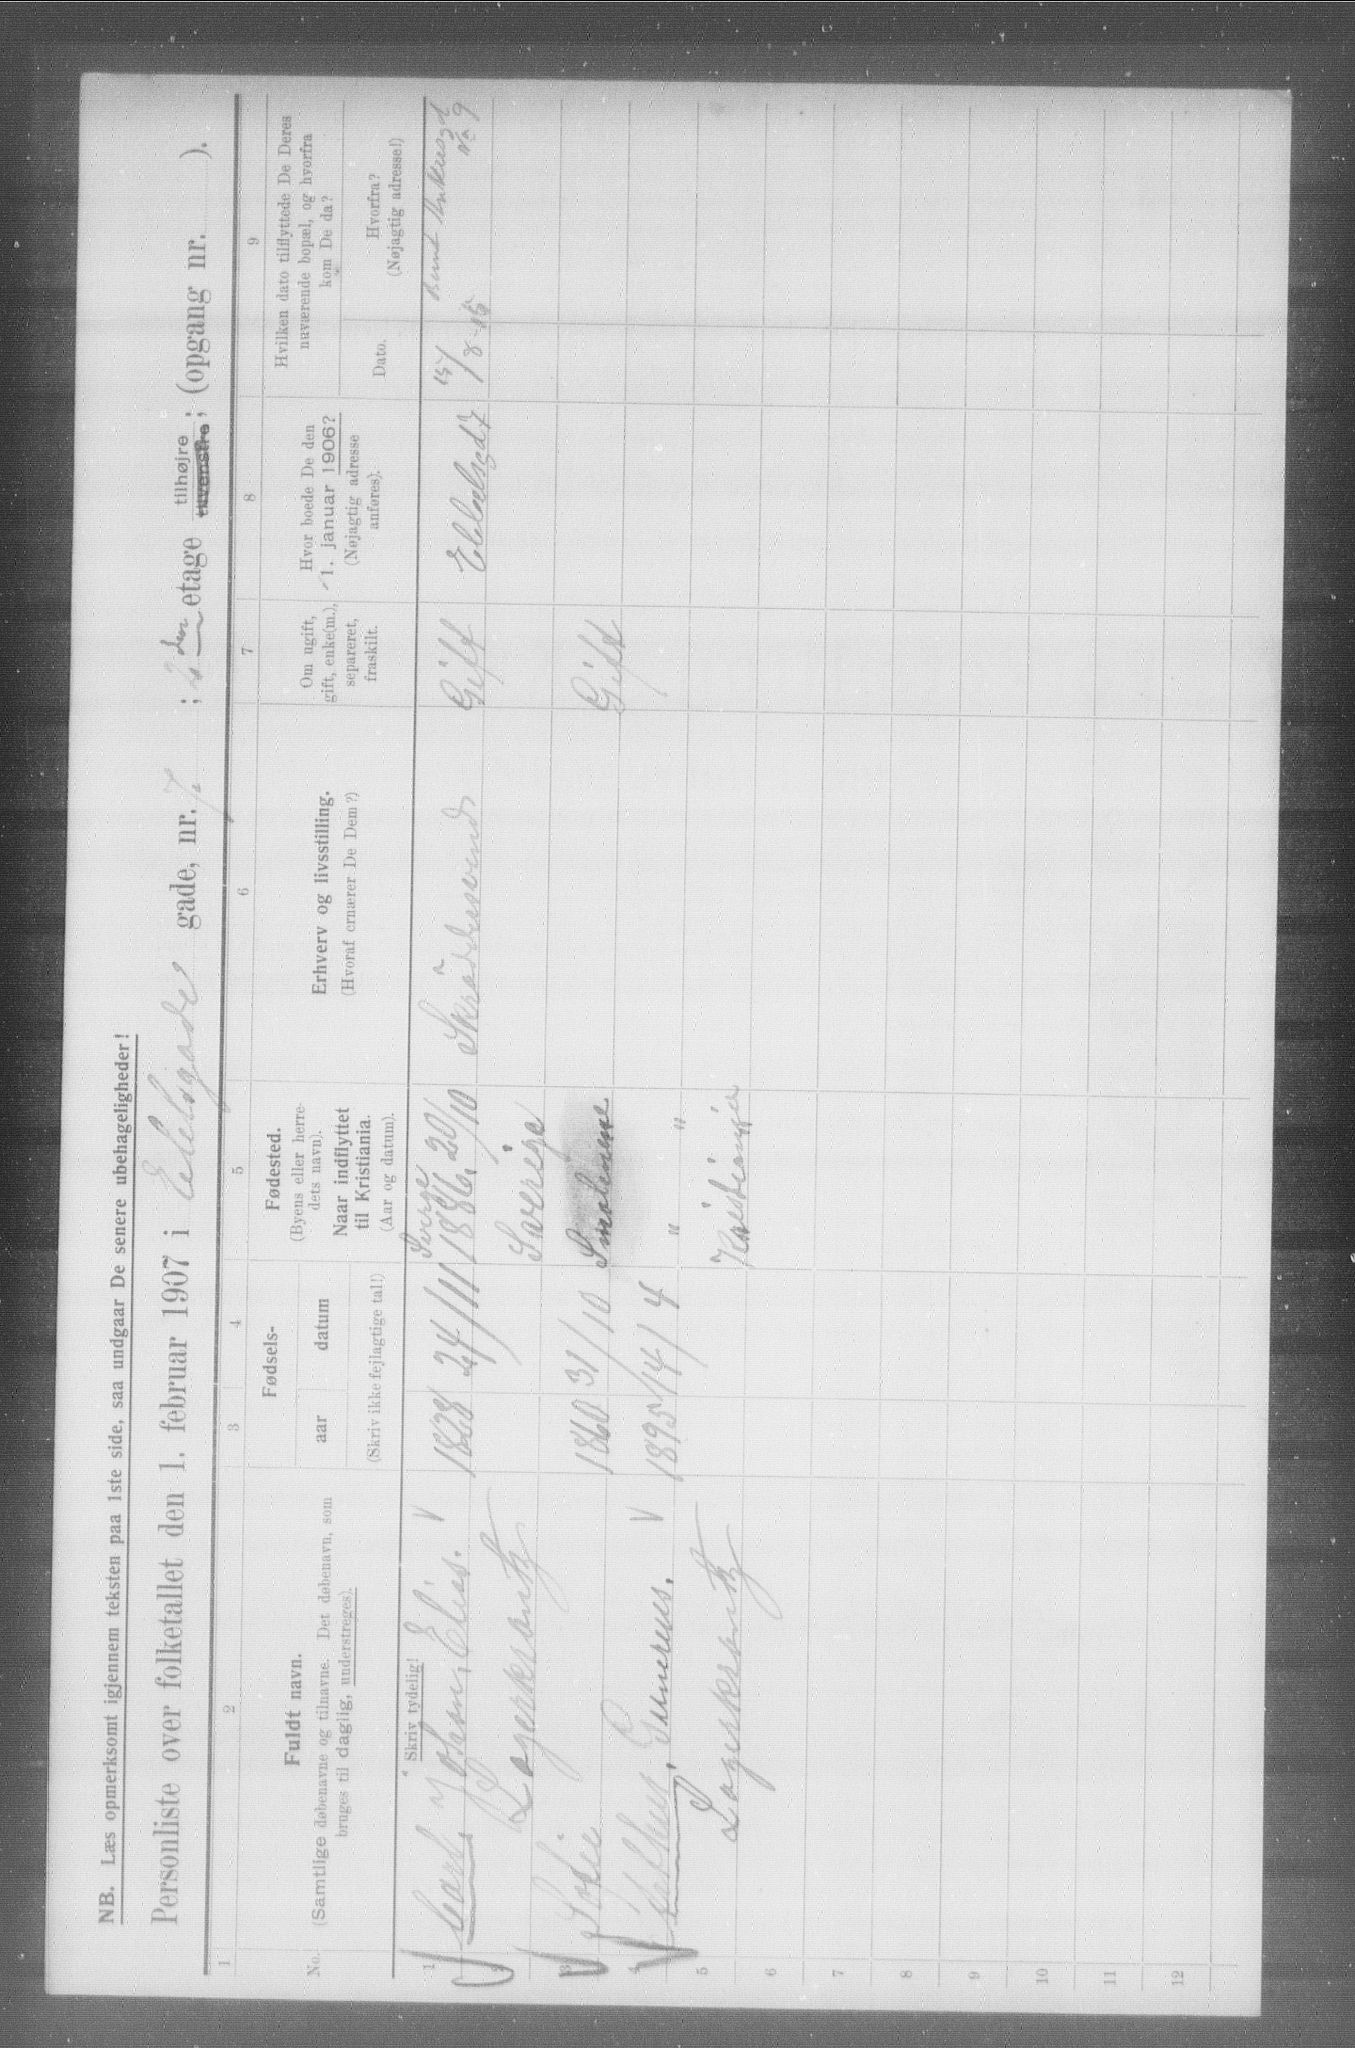 NB. Læs opmerksomt igjennem teksten paa 1ste side, saa undgaar De senere ubehageligheder!
Personliste over folketallet den 1. februar 1907 i Edelsgade gade, nr. 7 ; 2den etage tilhøjre tilvenstre ; (opgang nr. ).
1 2 3 4 5 6 7 8 9
No.
Fuldt navn.
(Samtlige døbenavne og tilnavne. Det døbenavn, som
bruges til daglig, understreges).
Fødsels-
aar datum
(Skriv ikke fejlagtige tal!)
Fødested.
(Byens eller herre-
dets navn).
Naar indflyttet
til Kristiania.
(Aar og datum).
Erhverv og livsstilling.
(Hvoraf ernærer De Dem?)
Om ugift,
gift, enke(m.),
separeret,
fraskilt.
Hvor boede De den
1. januar 1906?
(Nøjagtig adresse
anføres).
Hvilken dato tilflyttede De Deres
nuværende bopæl, og hvorfra
kom De da?
Dato.
Hvorfra?
(Nøjagtig adresse!)
Skriv tydelig!
1 Carl Johan Elias. 1828 24/11 1886 20/10 Gift Edelsgd 7 15/8-
No 9
2 Lagerkrantz Sverige
3 1860 31/10 Smalenene Gift
4 Gunerius. 1895 14/4 " "
5 Lagerkrantz Kristiania
6
7
8
9
10
11
12